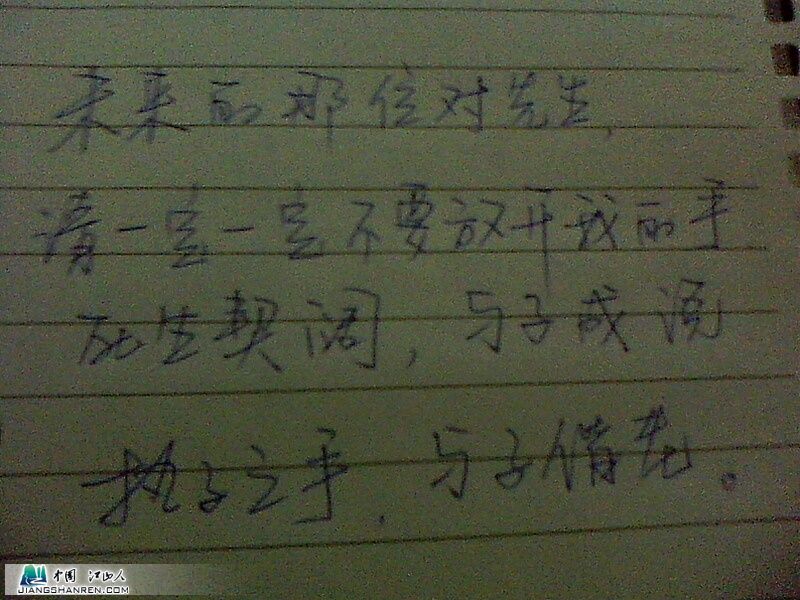 未来的那位对先生,
请一定一定不要放开我的手
死生契阔,与子成说
执子之手,与子偕老。
中国 江山人
JIANGSHANREN.COM